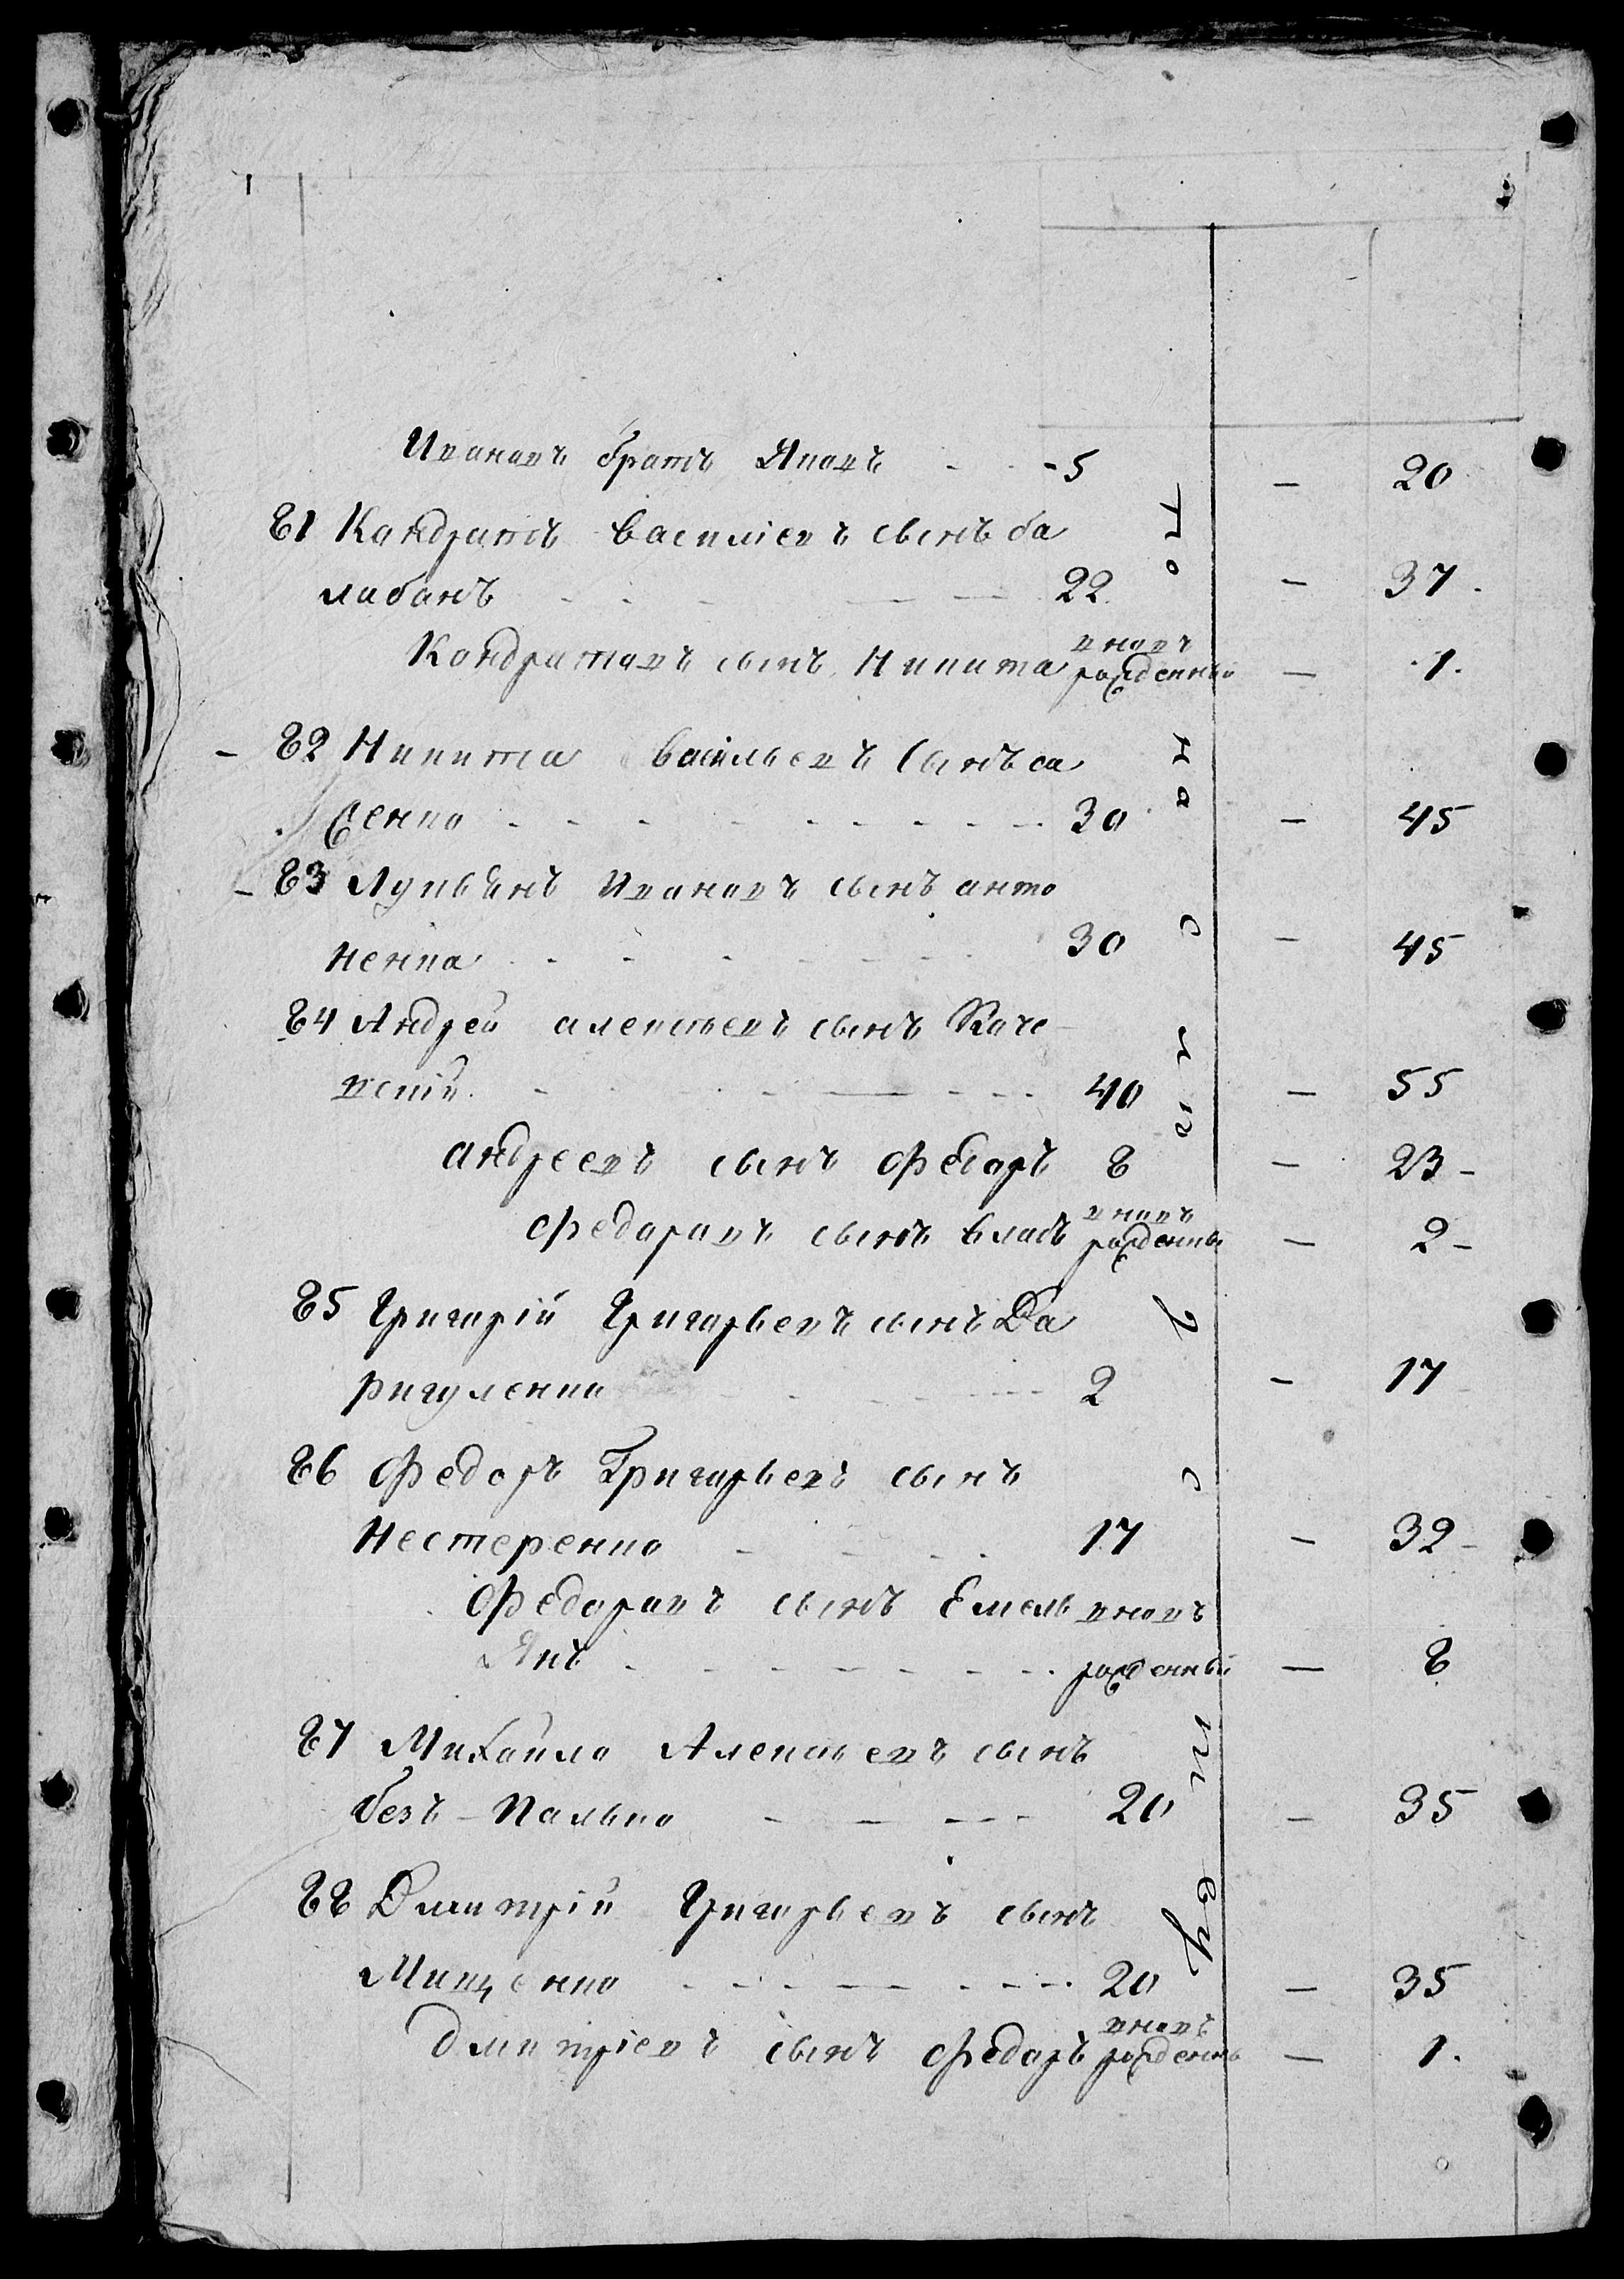 Ивановъ братъ Яковъ - - - 5 — 20
81 Кондратъ Василіевъ сынъ ба
лабанъ - - - 22 — 37.
Кондратовъ сынъ Никита вновь рожденный — 1.
— 82 Никита Васильевъ сынъ са
венко - - - 30 — 45
— 83 Лукьянъ Ивановъ сынъ анто
ненко - - - 30 — 45
84 Андрей алексѣевъ сынъ Коче
вскій - - - 40 — 55
андреевъ сынъ Федоръ 8 — 23 -
Федоровъ сынъ Власъ вновь рожденный — 2 -
85 Григорій Григорьевъ сынъ Да
ригуленко - - - 2 — 17
86 Федоръ Григорьевъ сынъ
Нестеренко - - - 17 — 32 -
Федоровъ сынъ Емель вновь
Янъ - - - рожденный — 8
87 Михайло Алексѣевъ сынъ
безъ-Палько - - - 20 — 35
88 Дмитрій Григорьевъ сынъ
Мищенко - - - 20 — 35
Дмитріевъ сынъ Федоръ вновь рожденный — 1.